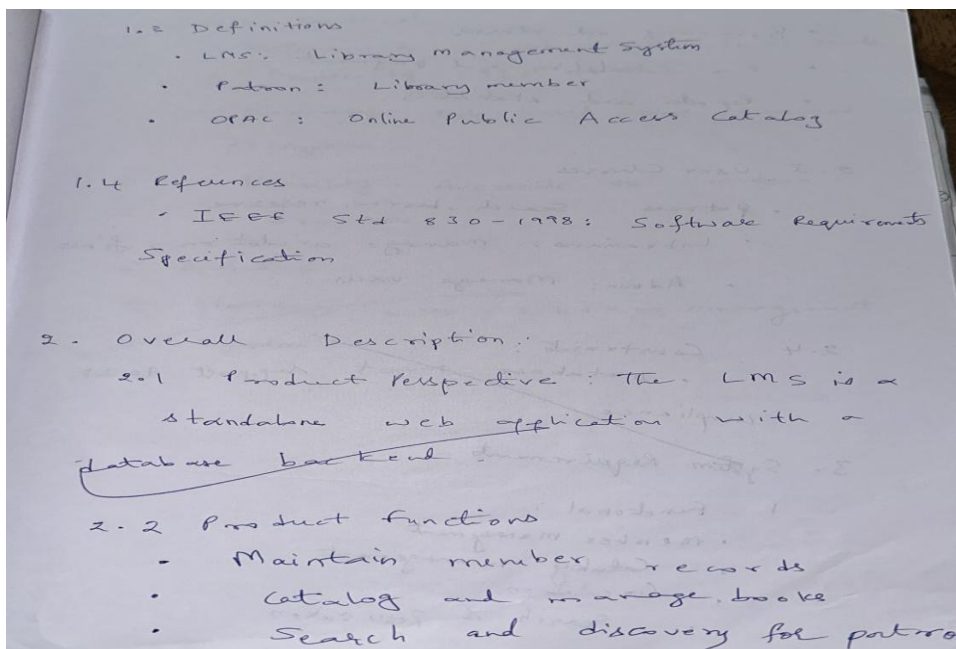 1.2 Definitions
• LMS: Library Management System
• Patron: Library member
• OPAC: Online Public Access Catalog
1.4 References
• IEEE Std 830-1998: Software Requirements
Specification
2. Overall Description:
2.1 Product Perspective: The LMS is a
standalone web application with a
database backend
2.2 Product functions
• Maintain member records
• Catalog and manage books
• Search and discovery for patro